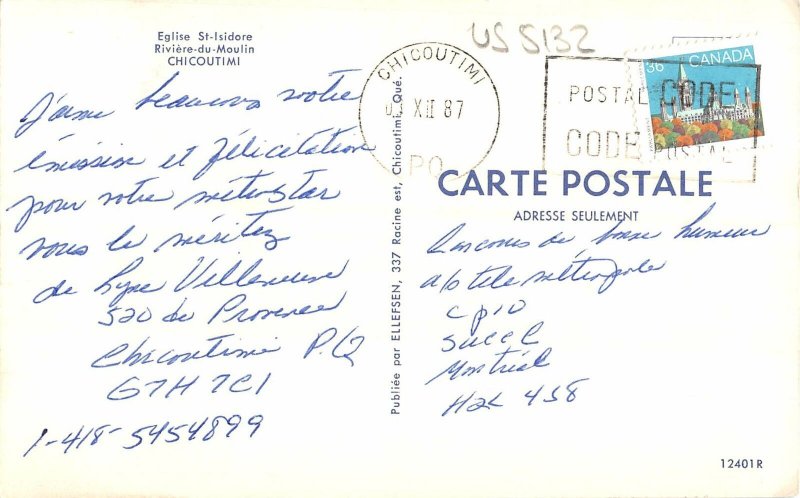 Eglise St-Isidore
Rivière-du-Moulin
CHICOUTIMI
J'aime beaucoup votre
émission et félicitation
pour votre métrostar
vous le méritez
de Lyne Villeneuve
520 de Provence
Chicoutimi P.Q
G7H 7C1
1-418-5454899
Publiée par ELLEFSEN, 337 Racine est, Chicoutimi, Qué.
US5132
CHICOUTIMI
XII 87
PQ
POSTAL CODE
CODE POSTAL
36 CANADA
CARTE POSTALE
ADRESSE SEULEMENT
de bonne humeur
a/s tele métropole
cp 10
Succ C
Montréal
H2L 4S8
12401R